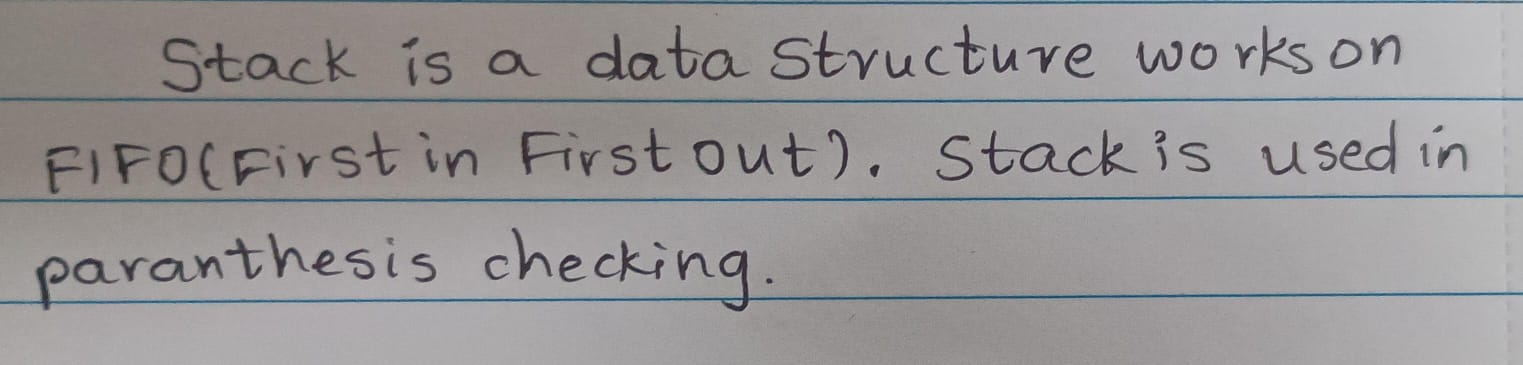 Stack is a data Structure works on
FIFO(First in First out). Stack is used in
paranthesis checking.